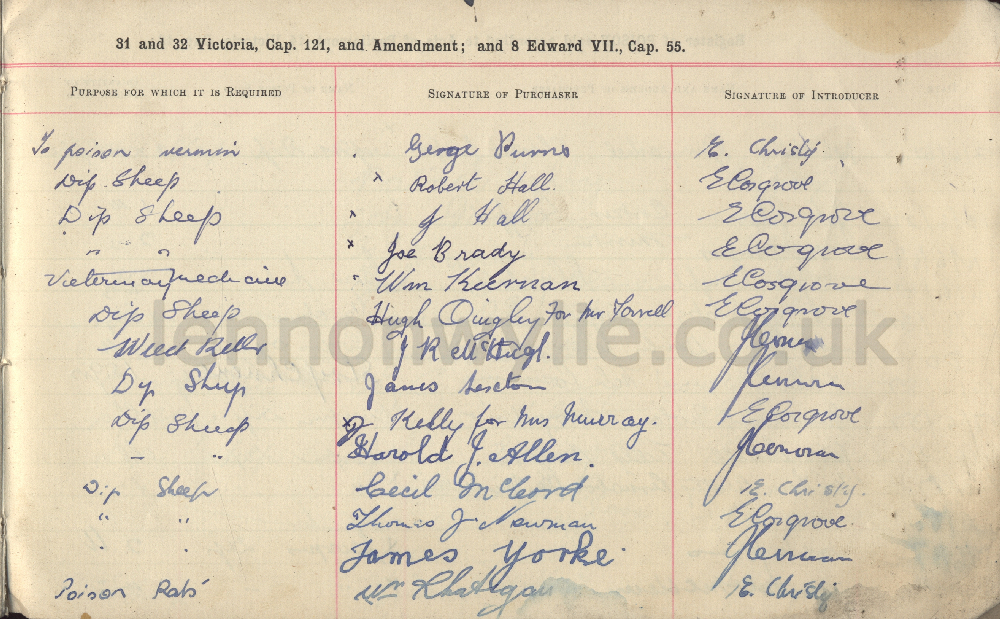 31 and 32 Victoria, Cap. 121, and Amendment; and 8 Edward VII., Cap. 55.
PURPOSE FOR WHICH IT IS REQUIRED SIGNATURE OF PURCHASER SIGNATURE OF INTRODUCER
To poison vermin George Burns E. Christy.
Dip Sheep " Robert Hall. E Cosgrove
Dip Sheep " J Hall E Cosgrove
" " " Joe Brady E Cosgrove
Veterinary medicine " Wm Kiernan E Cosgrove
Dip Sheep Hugh Quigley For Mr Farrell E Cosgrove
lennonwylie.co.uk
Weed Killer J R McHugh.
Dip Sheep James Sexton
Dip Sheep Kelly for Mrs Murray. E Cosgrove
" Harold J. Allen.
Dip Sheep Cecil McCord E. Christy.
" " Thomas J Newman E Cosgrove.
" " James Yorke
Poison Rats Wm Rhatigan E. Christy